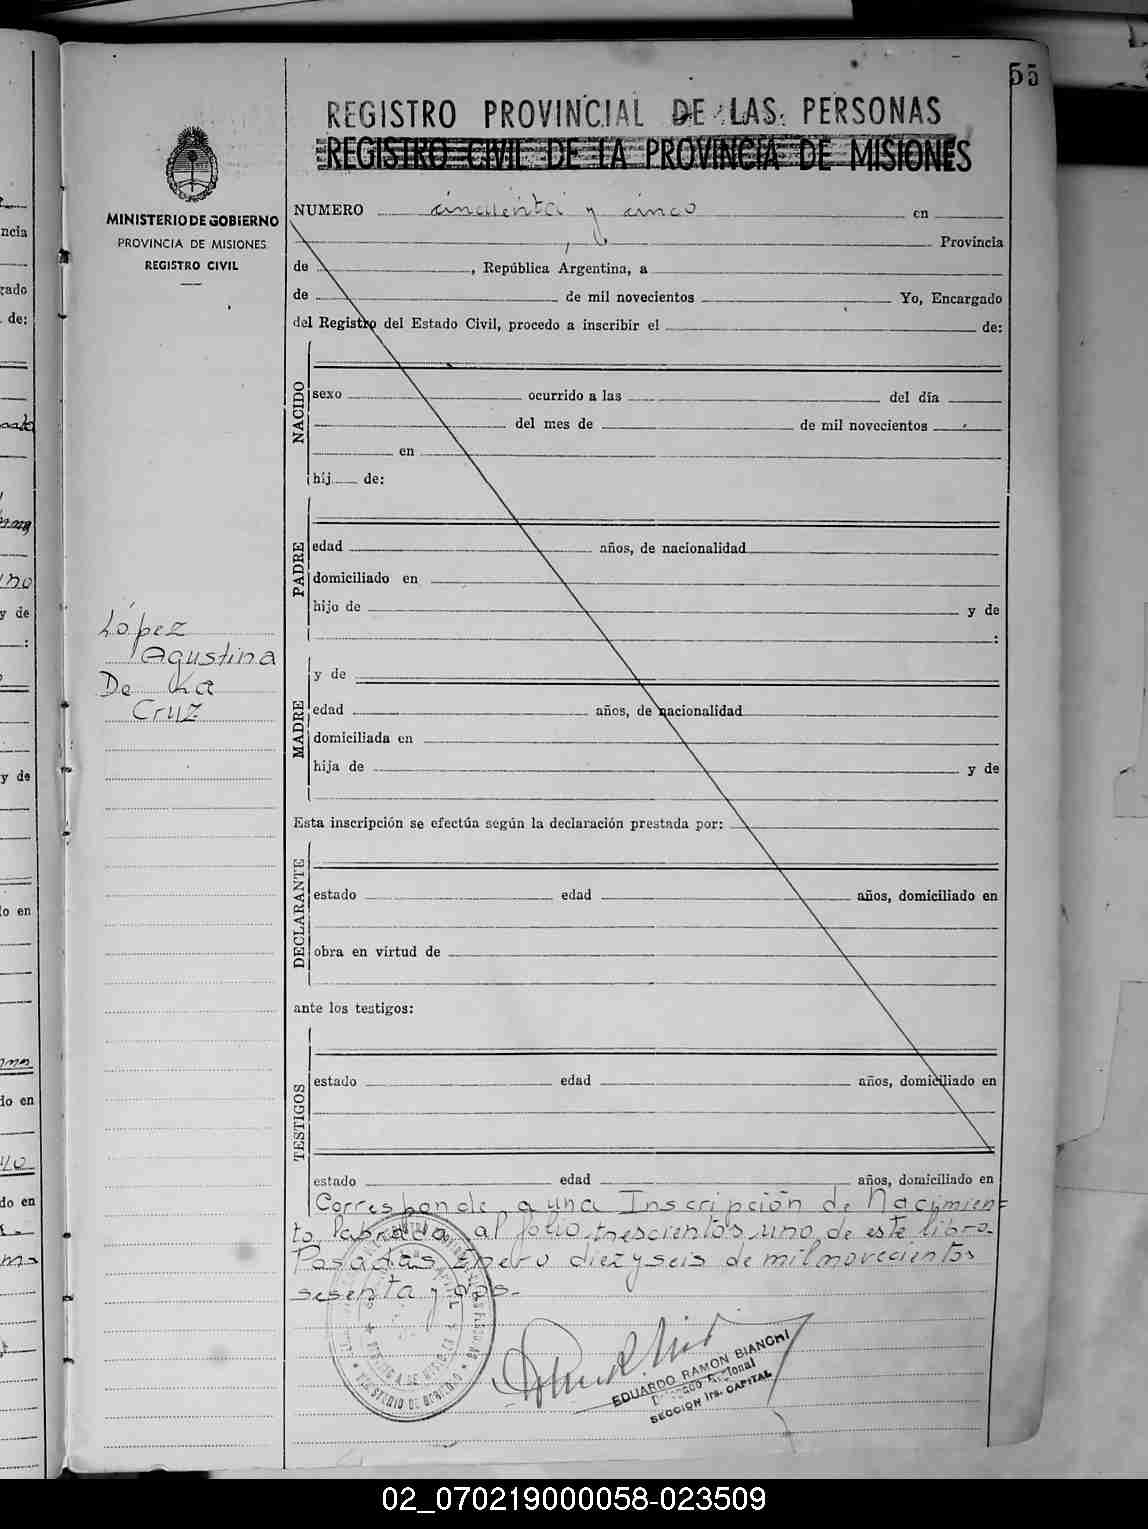 55
REGISTRO PROVINCIAL DE LAS PERSONAS
REGISTRO CIVIL DE LA PROVINCIA DE MISIONES
MINISTERIO DE GOBIERNO
PROVINCIA DE MISIONES
REGISTRO CIVIL
NUMERO cincuenta y cinco en
Provincia
de , República Argentina, a
de de mil novecientos Yo, Encargado
del Registro del Estado Civil, procedo a inscribir el de:
NACIDO
sexo ocurrido a las del día
del mes de de mil novecientos
en
hij de:
PADRE
edad años, de nacionalidad
domiciliado en
hijo de y de
:
López
Agustina
De La
Cruz
MADRE
y de
edad años, de nacionalidad
domiciliada en
hija de y de
Esta inscripción se efectúa según la declaración prestada por:
DECLARANTE
estado edad años, domiciliado en
obra en virtud de
ante los testigos:
TESTIGOS
estado edad años, domiciliado en
estado edad años, domiciliado en
Corresponde a una Inscripción de Nacimien=
to, labrada al folio trescientos uno de este libro.
Posadas, Enero diezyseis de mil novecientos
sesenta y dos.-
EDUARDO RAMON BIANCHI
SECCION 1ra. CAPITAL
ncia
de:
y de
y de
do en
do en
02_070219000058-023509